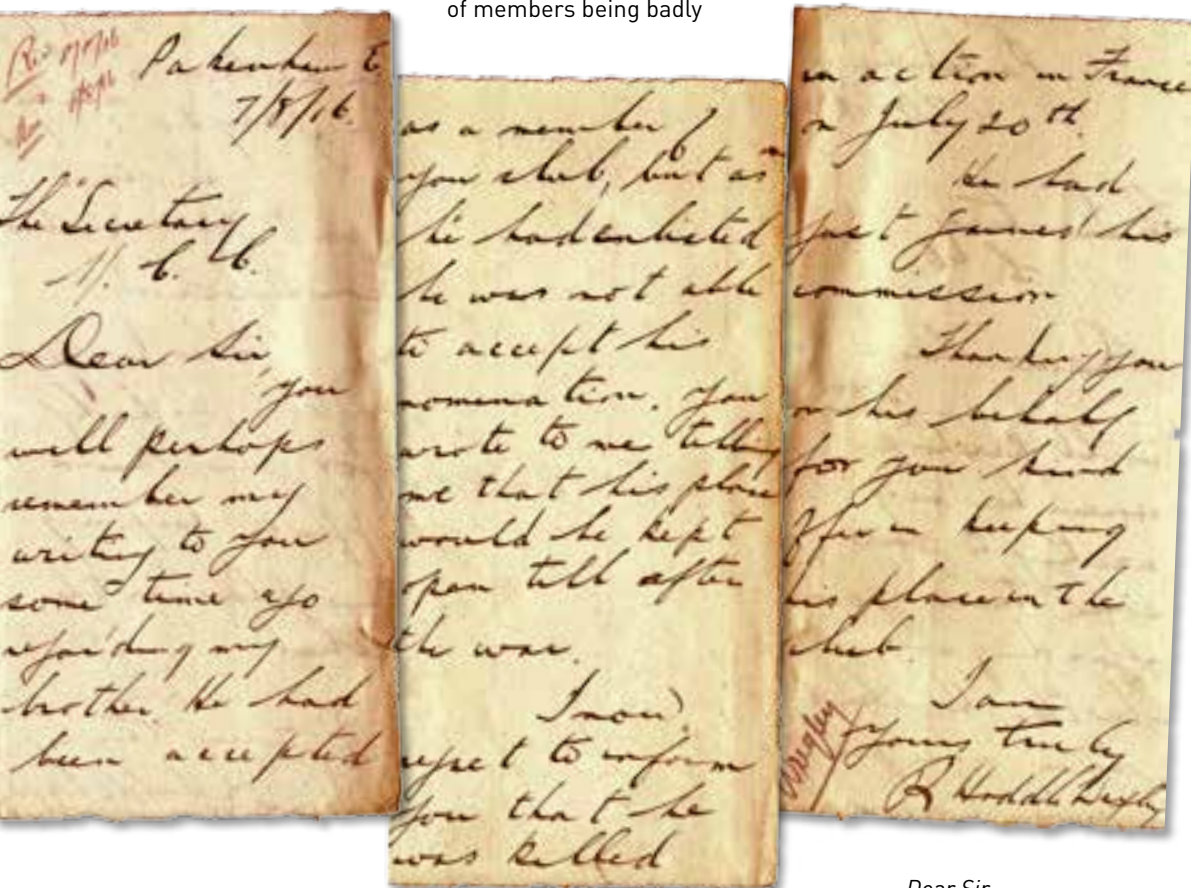 of members being badly
Pakenham E
7/8/16.
The Secretary
M. C. C.
Dear Sir,
you
will perhaps
remember my
writing to you
some time ago
regarding my
brother. He had
been accepted
as a member of
your club, but as
he had enlisted
he was not able
to accept his
nomination. You
wrote to me telling
me that his place
would be kept
open till after
the war.
I now,
regret to inform
you that he
was killed
in action in France
on July 20th.
He had
just gained his
commission
Thanking you
on his behalf
for your kind
offer in keeping
his place in the
club.
I am
Yours truly
R Hoddle Wrigley
Wrigley
Dear Sir